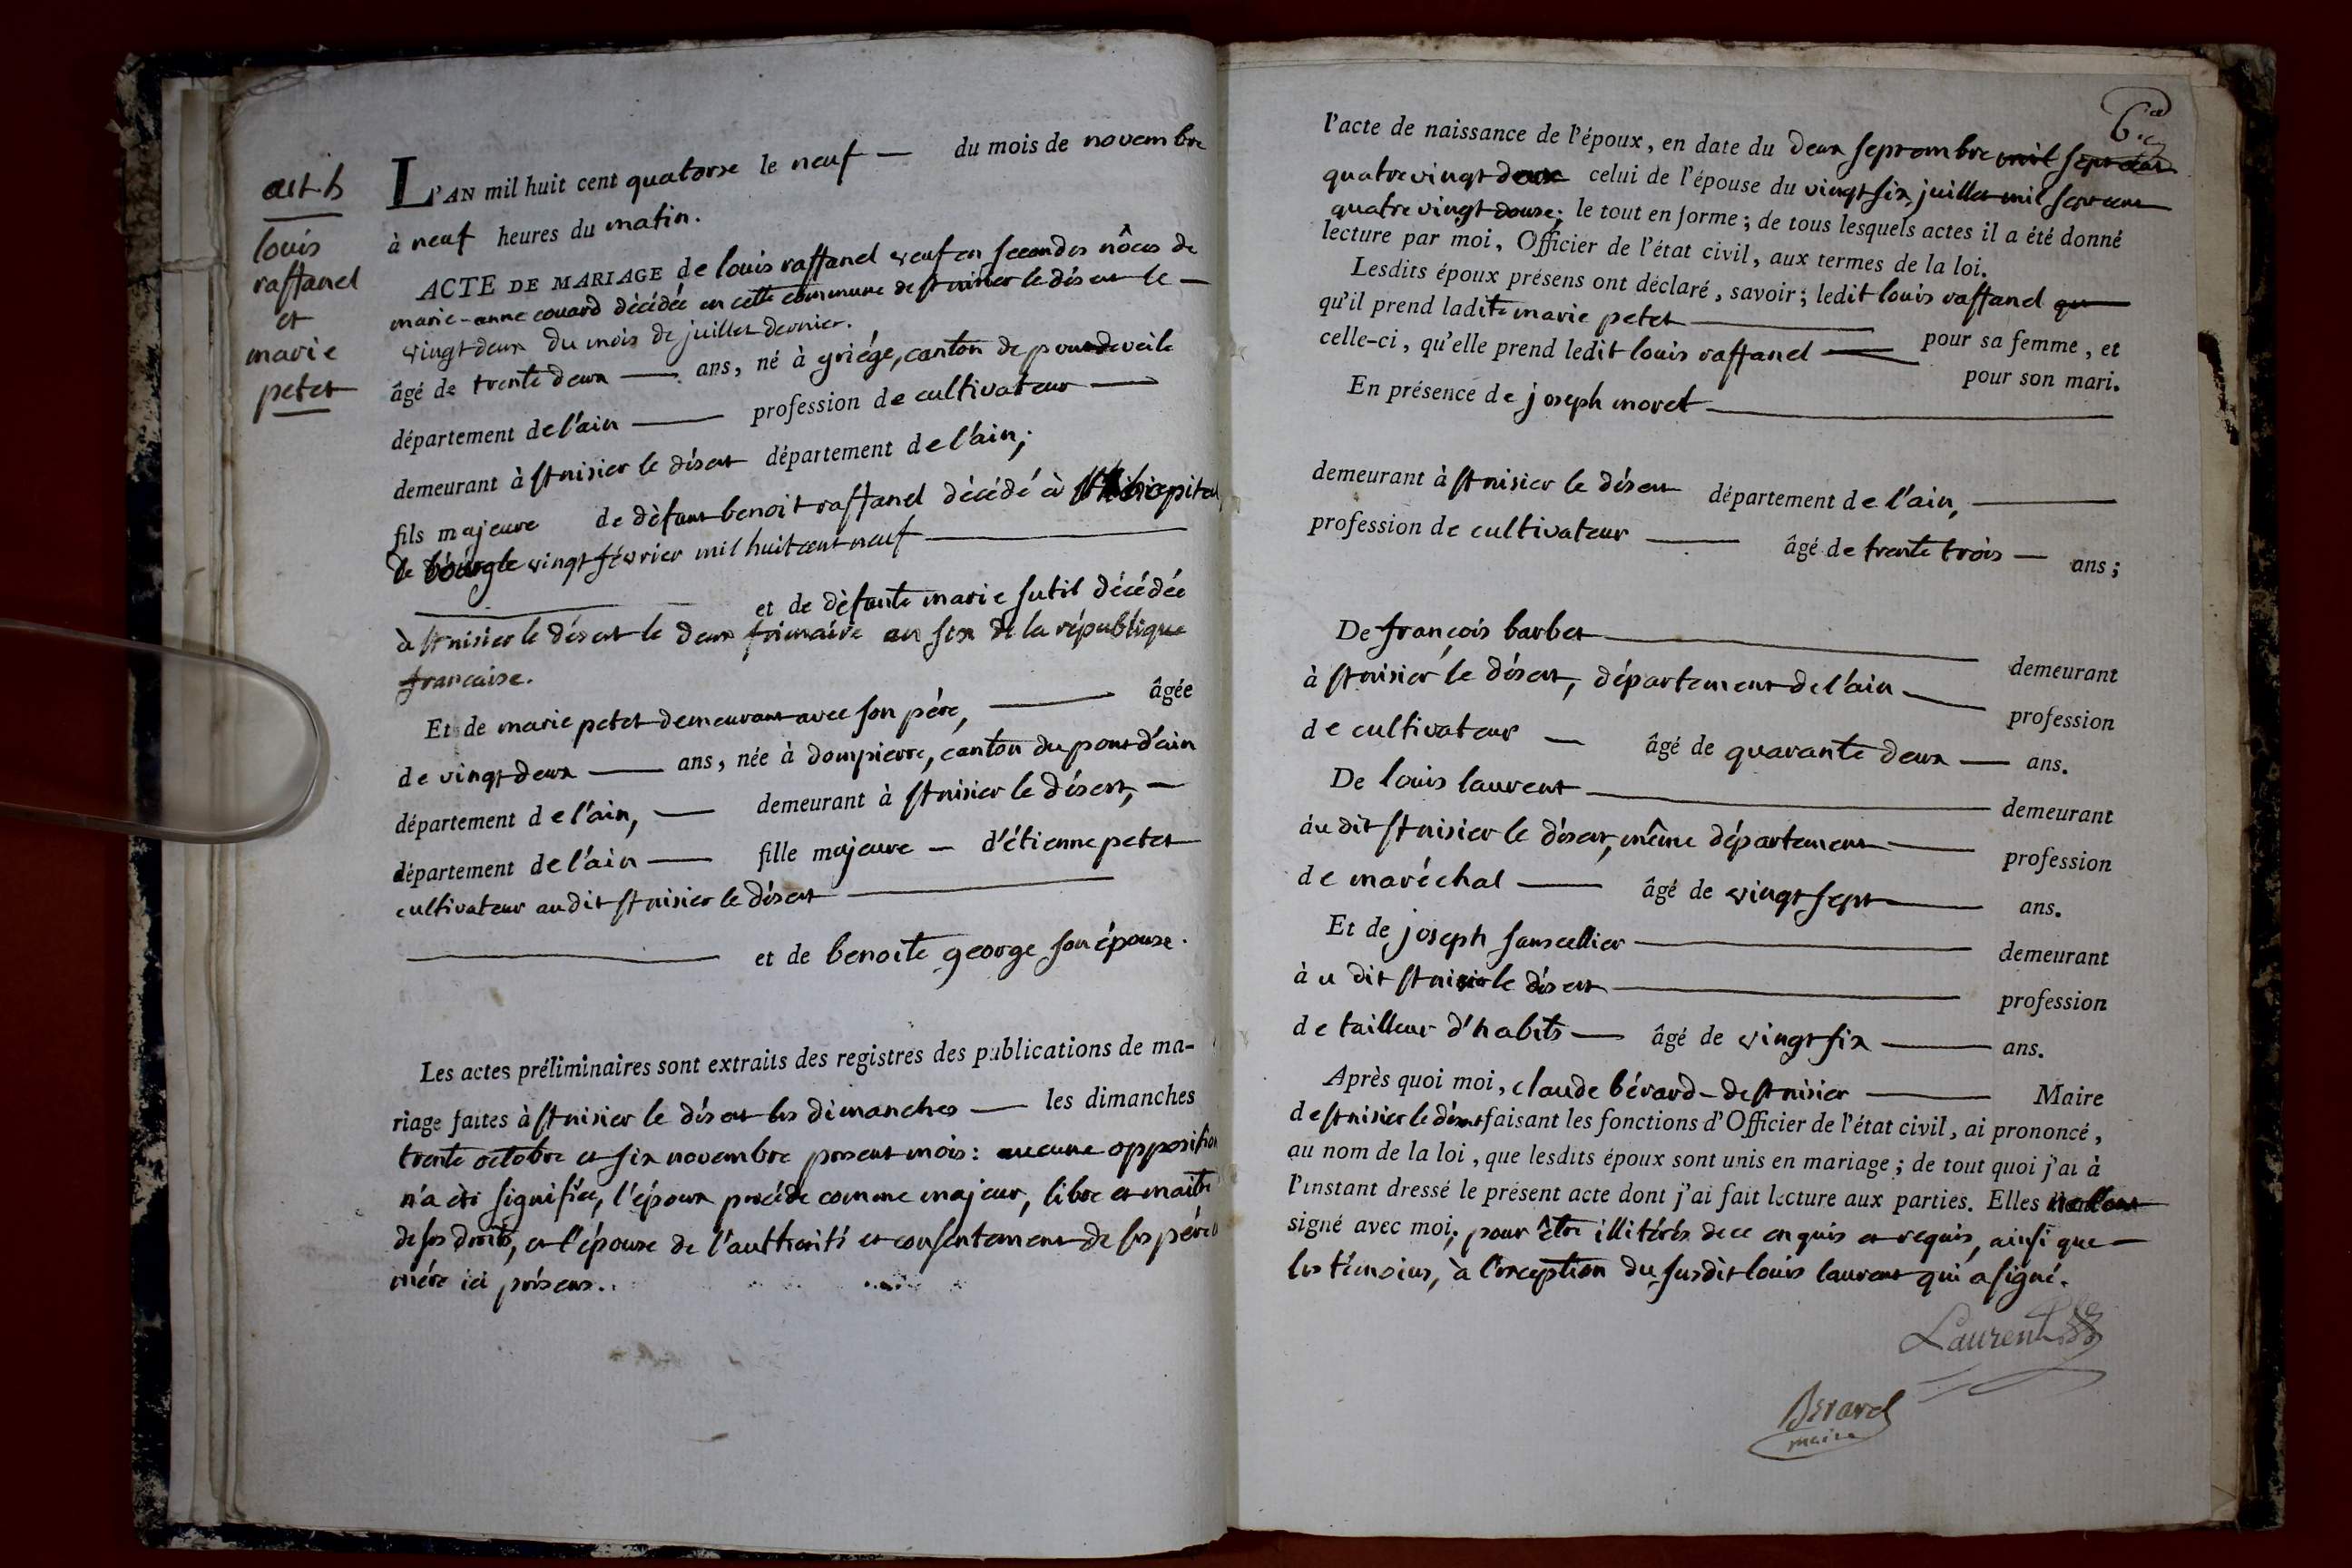 art. 6
louis
raffanel
et
marie
petet
L'AN mil huit cent quatorse le neuf — du mois de novembre
à neuf heures du matin.
ACTE DE MARIAGE de louis raffanel veuf en secondes nôces de
marie-anne couard décédée en cette commune de st nisier le désert le —
vingt deux du mois de juillet dernier.
âgé de trente deux — ans, né à griége, canton de pont de veile
département de l'ain — profession de cultivateur —
demeurant à st nisier le désert département de l'ain;
fils majeure de défunt benoit raffanel décédé à l'hôpital
de bourg le vingt février mil huit cent neuf —
— et de défunte marie sutil décédée
à st nisier le désert le deux frimaire an six de la république
francaise.
Et de marie petet demeurant avec son pére, — âgée
de vingt deux — ans, née à dompierre, canton du pont d'ain
département de l'ain, — demeurant à st nisier le désert, —
département de l'ain — fille majeure — d'étienne petet
cultivateur au dit st nisier le désert —
— et de benoite george son épouse.
Les actes préliminaires sont extraits des registres des publications de ma-
riage faites à st nisier le désert les dimanches — les dimanches
trente octobre et six novembre present mois: aucune opposition
n'a été signifiée, l'époux procéde comme majeur, libre et maitre
de ses droits, et l'épouse de l'authorité et consentement de ses pére
mére ici présens.
l'acte de naissance de l'époux, en date du deux septembre mil sept cent
quatre vingt deux celui de l'épouse du vingt six juillet mil sept cent
quatre vingt douse; le tout en forme; de tous lesquels actes il a été donné
lecture par moi, Officier de l'état civil, aux termes de la loi.
Lesdits époux présens ont déclaré, savoir; ledit louis raffanel
qu'il prend ladite marie petet — pour sa femme, et
celle-ci, qu'elle prend ledit louis raffanel — pour son mari.
En présence de joseph moret —
demeurant à st nisier le désert département de l'ain, —
profession de cultivateur — âgé de trente trois — ans;
De françois barbet — demeurant
à st nisier le désert, département de l'ain — profession
de cultivateur — âgé de quarante deux — ans.
De louis laurent — demeurant
au dit st nisier le désert, même département — profession
de maréchal — âgé de vingt sept — ans.
Et de joseph — demeurant
àu dit st nisier le désert — profession
de tailleur d'habits — âgé de vingt six — ans.
Après quoi moi, claude bérard-de st nisier — Maire
de st nisier le désert faisant les fonctions d'Officier de l'état civil, ai prononcé,
au nom de la loi, que lesdits époux sont unis en mariage; de tout quoi j'ai à
l'instant dressé le présent acte dont j'ai fait lecture aux parties. Elles
signé avec moi, pour être illitérés de ce enquis et requis, ainsi que —
les témoins, à l'exception du susdit louis laurent qui a signé.
Laurent
Bérard
maire